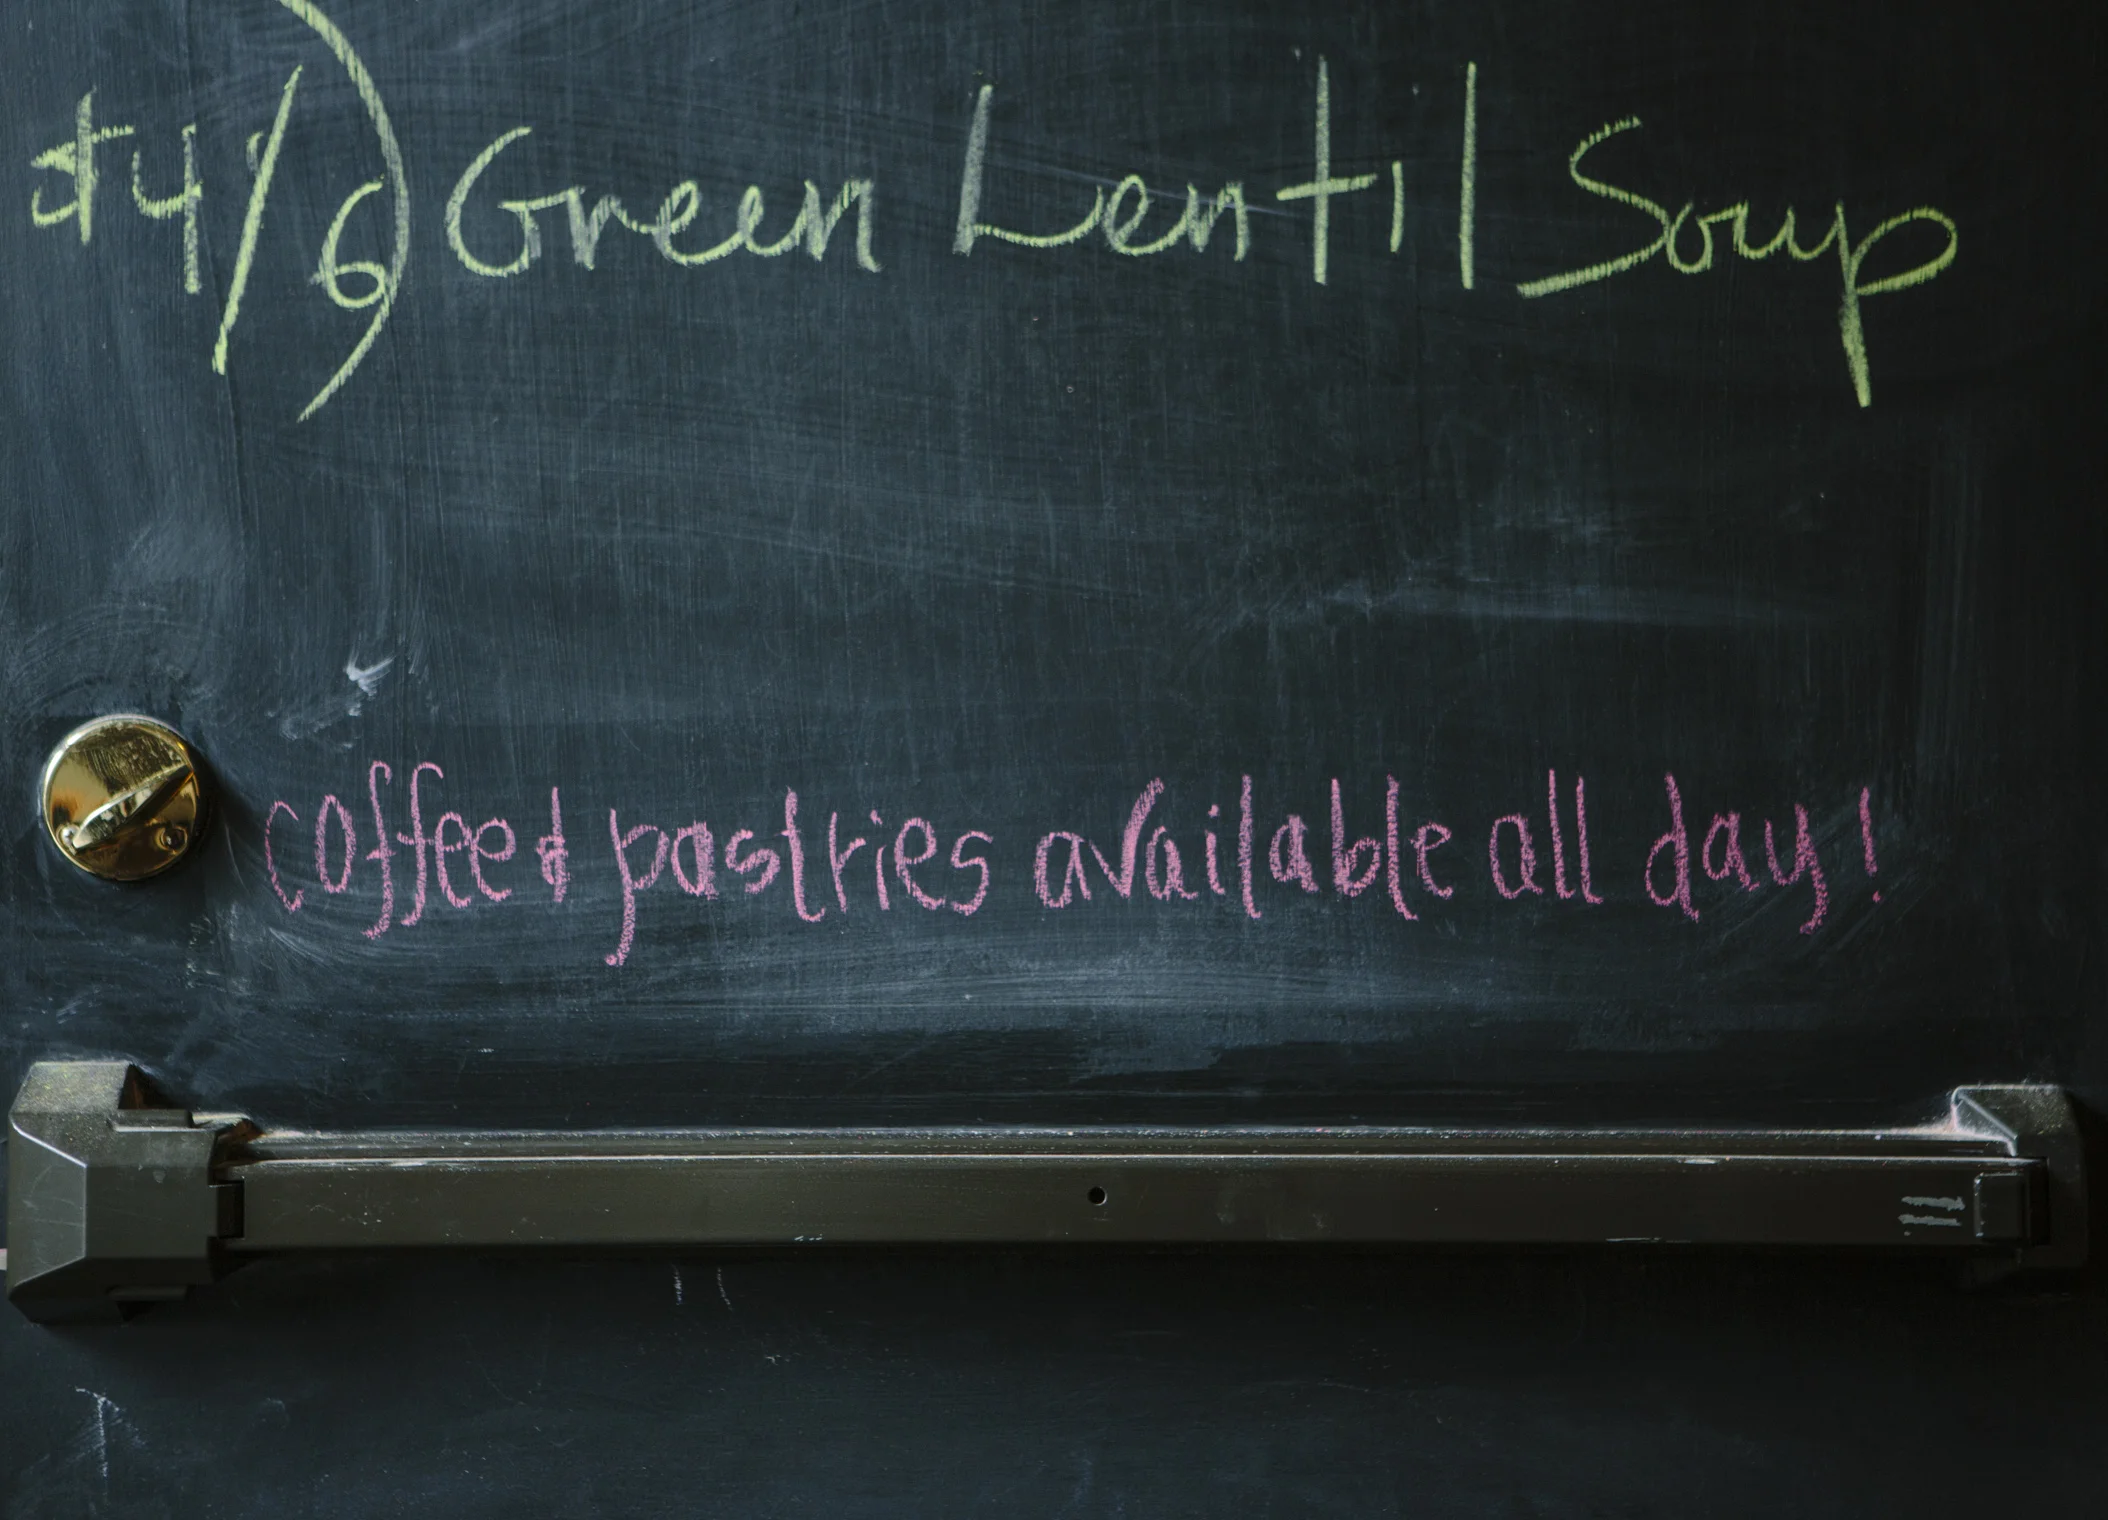 $4/6) Green Lentil Soup
coffee & pastries available all day!